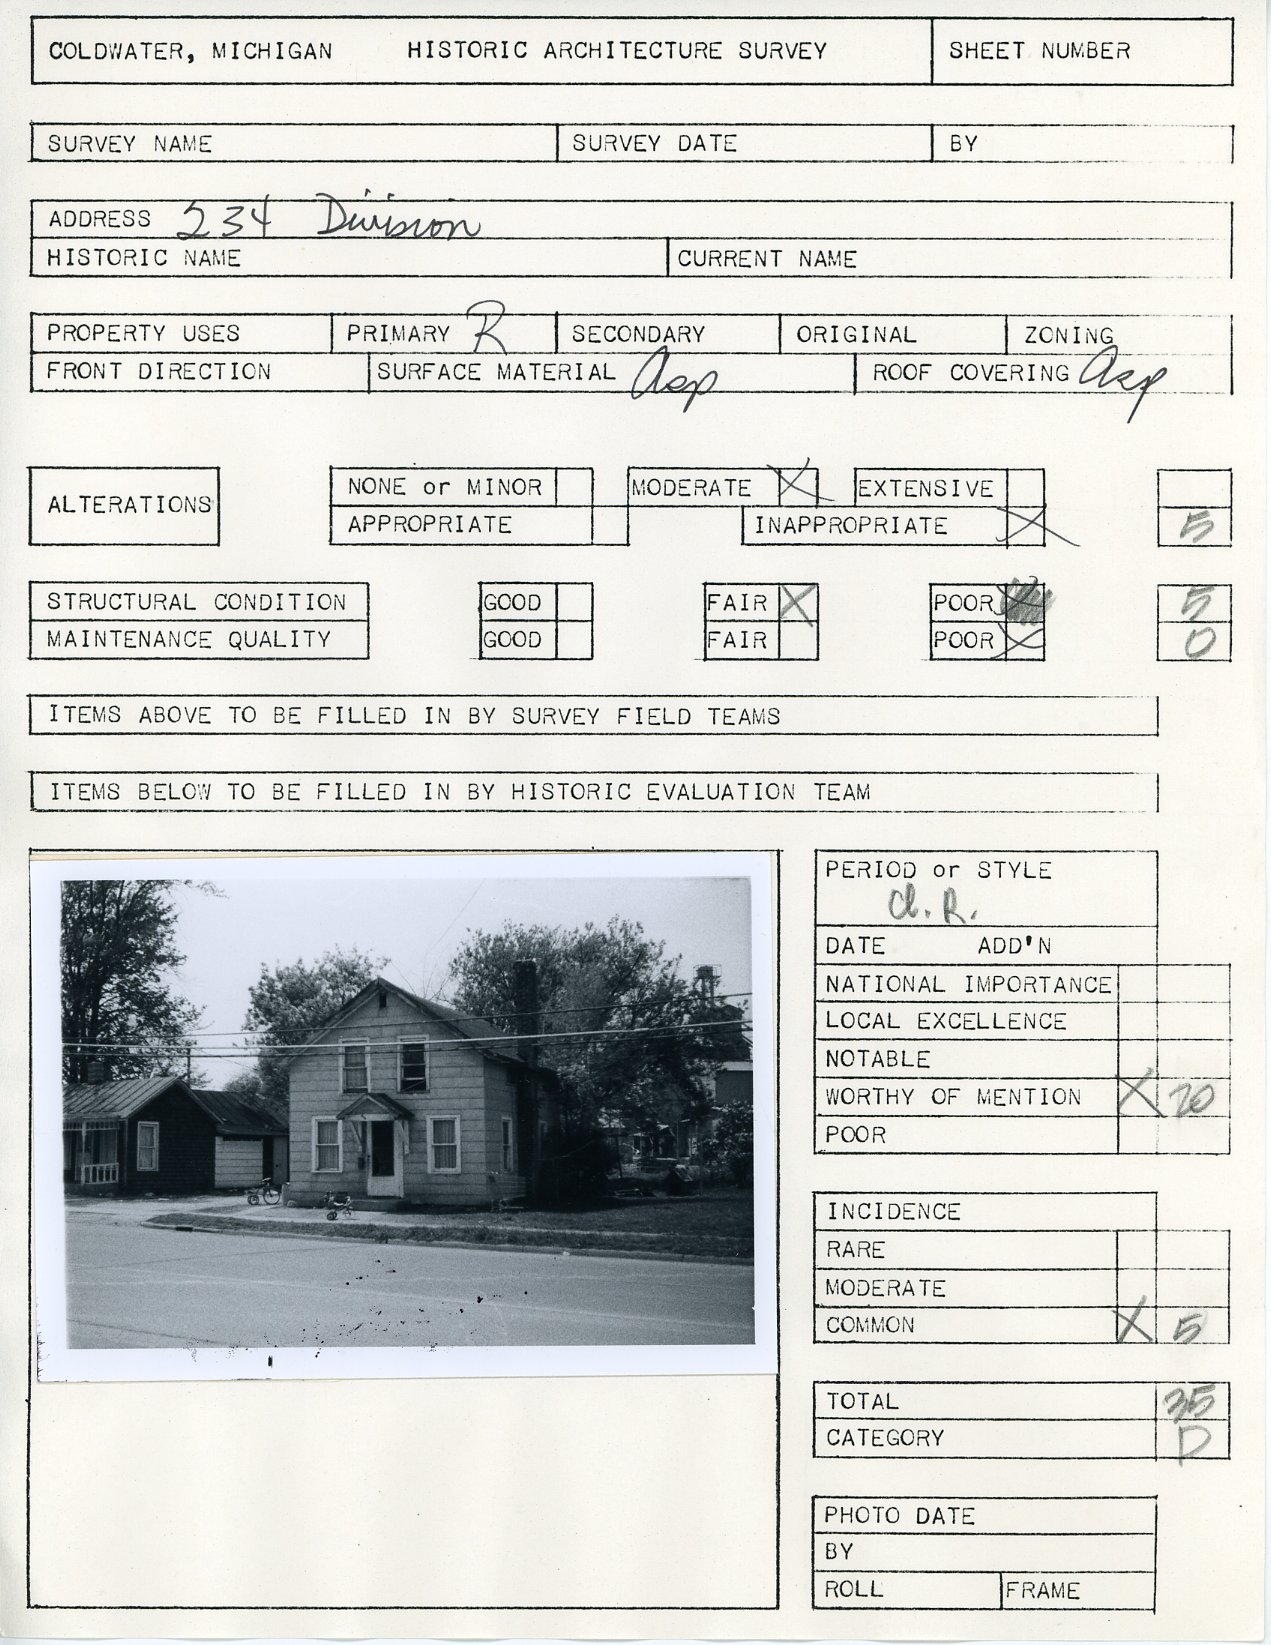 COLDWATER, MICHIGAN HISTORIC ARCHITECTURE SURVEY SHEET NUMBER
SURVEY NAME SURVEY DATE BY
ADDRESS 234 Division
HISTORIC NAME CURRENT NAME
PROPERTY USES PRIMARY R SECONDARY ORIGINAL ZONING
FRONT DIRECTION SURFACE MATERIAL Asp ROOF COVERING Asp
ALTERATIONS NONE or MINOR MODERATE X EXTENSIVE
APPROPRIATE INAPPROPRIATE X 5
STRUCTURAL CONDITION GOOD FAIR X POOR 5
MAINTENANCE QUALITY GOOD FAIR POOR X 0
ITEMS ABOVE TO BE FILLED IN BY SURVEY FIELD TEAMS
ITEMS BELOW TO BE FILLED IN BY HISTORIC EVALUATION TEAM
PERIOD or STYLE
R.
DATE ADD'N
NATIONAL IMPORTANCE
LOCAL EXCELLENCE
NOTABLE
WORTHY OF MENTION X 20
POOR
INCIDENCE
RARE
MODERATE
COMMON X 5
TOTAL 35
CATEGORY D
PHOTO DATE
BY
ROLL FRAME